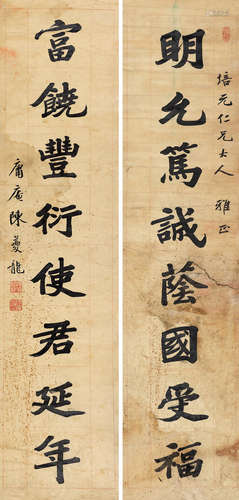 培元仁兄大人 雅正
明允篤誠蔭國受福
富饒豐衍使君延年
庸庵陳夔龍